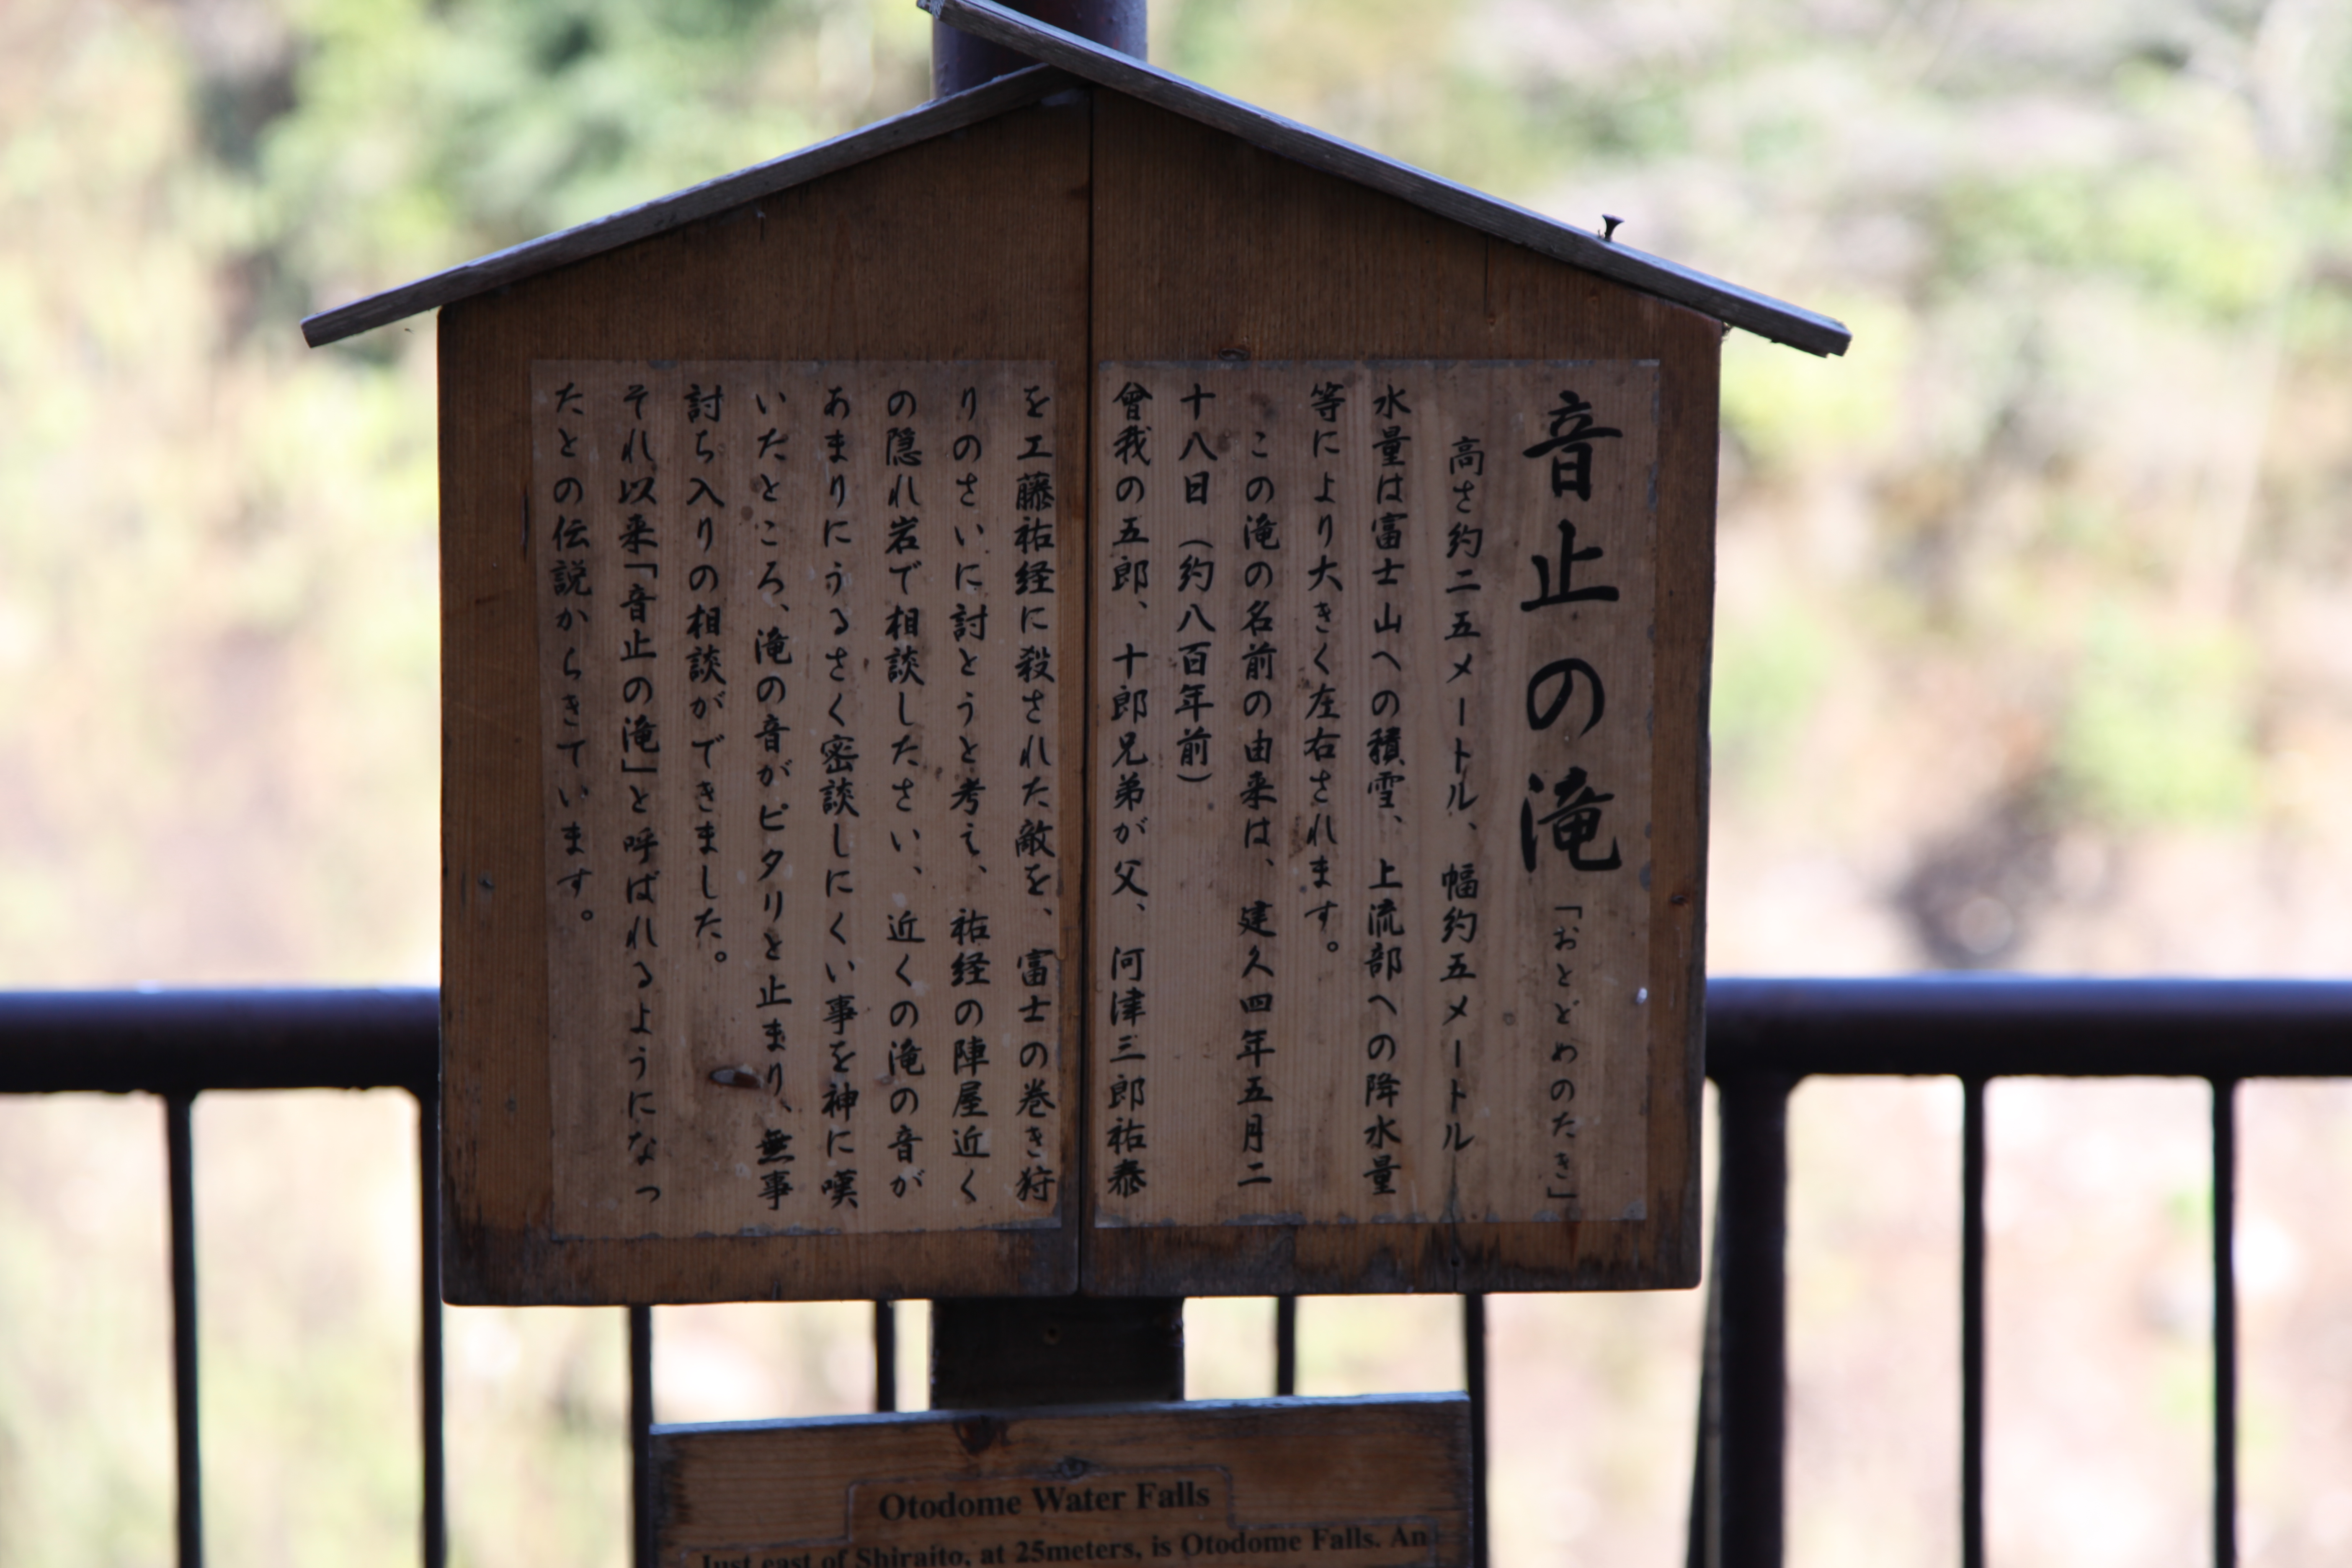 音止の滝「おとどめのたき」
高さ約二五メートル、幅約五メートル
水量は富士山への積雪、上流部への降水量
等により大きく左右されます。
この滝の名前の由来は、建久四年五月二
十八日(約八百年前)
曾我の五郎、十郎兄弟が父、河津三郎祐泰
を工藤祐経に殺された敵を、富士の巻き狩
りのさいに討とうと考え、祐経の陣屋近く
の隠れ岩で相談したさい、近くの滝の音が
あまりにうるさく密談しにくい事を神に嘆
いたところ、滝の音がピタリと止まり、無事
討ち入りの相談ができました。
それ以来「音止の滝」と呼ばれるようになっ
たとの伝説からきています。
Otodome Water Falls
Just east of Shiraito, at 25meters, is Otodome Falls. An